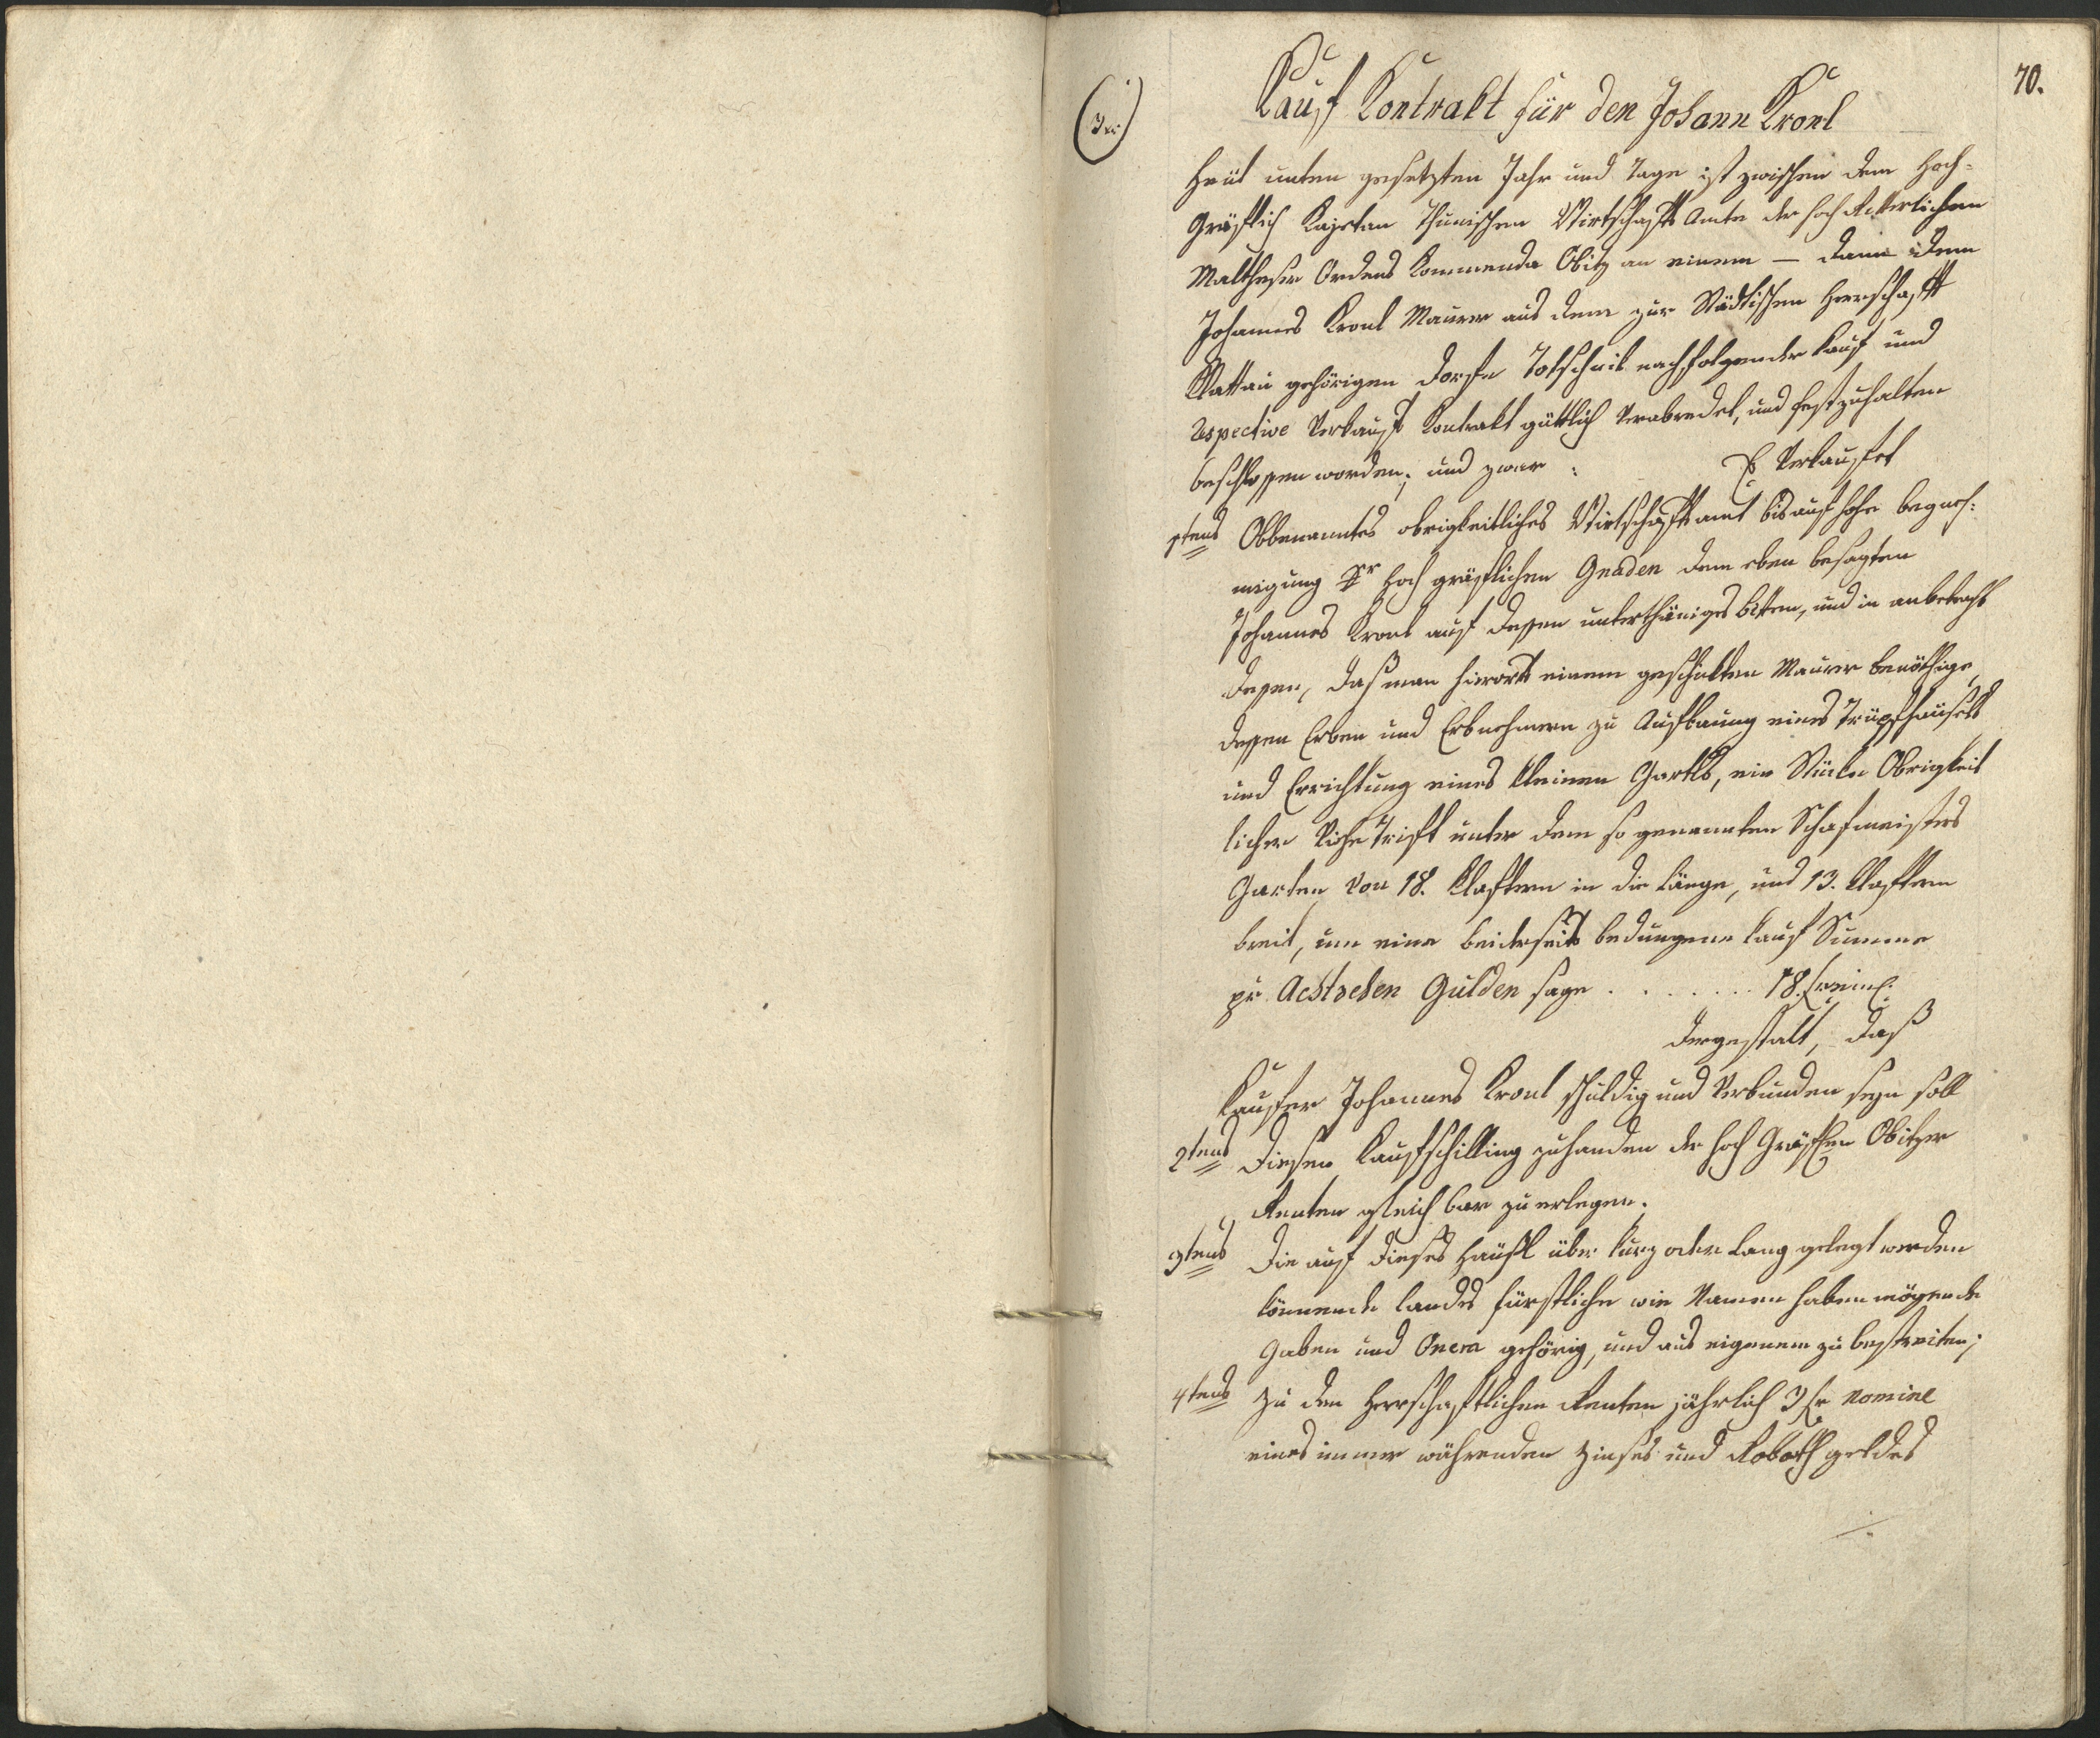 70.
Kauf Kontrakt für den Johann Kronl
Heüt unten gesetzten Jahr und Tage ist zwischen dem Hoch-
Gräflich Kajetan Thunischen Wirtschafts Amte der hoch Ritterlichen
Maltheser Ordens Kommenda Obitz an einem – dann dem
Johannes Kronl Maurer aus dem zur Städtischen Herrschaft
Klattau gehörigen Dorfe nachfolgender Kauf und
respective Verkaufs Kontrakt güttlich verabredet, und fest zuhalten
beschlossen worden; und zwar :
Es Verkaufet
1tens Obbenanntes obrigkeitliches Wirtschaftsamt bis auf hohe begneh-
migung Sr Hoch gräflichen Gnaden dem eben besagten
Johannes Kronl auf dessen unterthäniges bitten, und in anbetracht
dessen, daß man hierorts einem geschickten Maurer benöthige,
dessen Erben und Erbnehmern zu Aufbauung eines Trüpfhäusels
und Errichtung eines kleinen Gartls, ein Stücke Obrigkeit
licher Viehe Trift unter dem so genannten Schafmeisters
Garten von 18. Klaftern in die Länge, und 13. Klaftern
breit, um eine beiderseits bedungene Kauf Summe
pr. Achtzehen Gulden sage . . . . . . . 18. f
dergestalt, daß
Kaufer Johannes Kronl schuldig und verbunden seyn soll
2tens Diesen Kaufschilling zuhanden der hoch Gräflen Obitzer
Renten gleich bar zu erlegen.
3tens Die auf dieses Häußl über kurz oder lang gelegt werden
könnende landes fürstliche wie Namen haben mögende
Gaben und Onera gehörig, und aus eigenem zu bestreiten;
4tens Zu den Herrschaftlichen Renten jährlich 3 f nomine
eines immer währenden Zinses und Roboth geldes